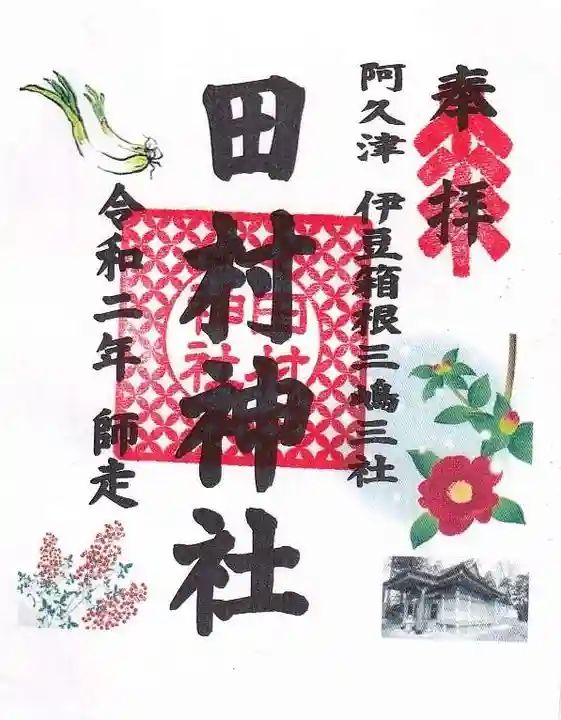 奉拝
阿久津 伊豆箱根三嶋三社
田村神社
田村
神社
令和二年 師走